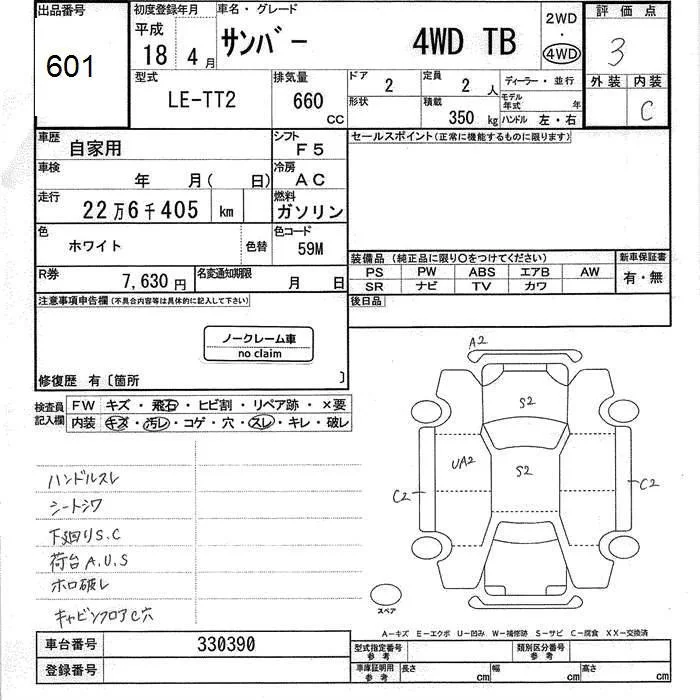 出品番号
601
初度登録年月
平成
18 4 月
車名・グレード
サンバー 4WD TB
2WD
・
4WD
評価点
3
外装 内装
C
型式
LE-TT2
排気量
660 CC
ドア
2
定員
2 人
形状
積載
350 kg
ディーラー・並行
モデル年式 年
ハンドル 左・右
車歴
自家用
シフト
F5
車検
年 月( 日)
冷房
AC
走行
22万6千405 km
燃料
ガソリン
色
ホワイト
色替
色コード
59M
R券
7,630 円
名変通知期限
月 日
セールスポイント(正常に機能するものに限ります)
装備品(純正品に限り○をつけてください)
PS PW ABS エアB AW
SR ナビ TV カワ
新車保証書
有・無
後日品
注意事項申告欄(不具合内容等は具体的に記入して下さい)
ノークレーム車
no claim
修復歴 有〔箇所 〕
検査員記入欄
FW キズ・飛石・ヒビ割・リペア跡・×要
内装 キズ・汚レ・コゲ・穴・スレ・キレ・破レ
ハンドルスレ
シートシワ
下廻りS.C
荷台A.U.S
ホロ破レ
キャビンフロアC穴
A2
S2
UA2
S2
C2
C2
スペア
A―キズ E―エクボ U―凹み W―補修跡 S―サビ C―腐食 XX―交換済
車台番号
330390
登録番号
型式指定番号
参考
類別区分番号
参考
車庫証明用
参考
長さ cm
幅 cm
高さ cm